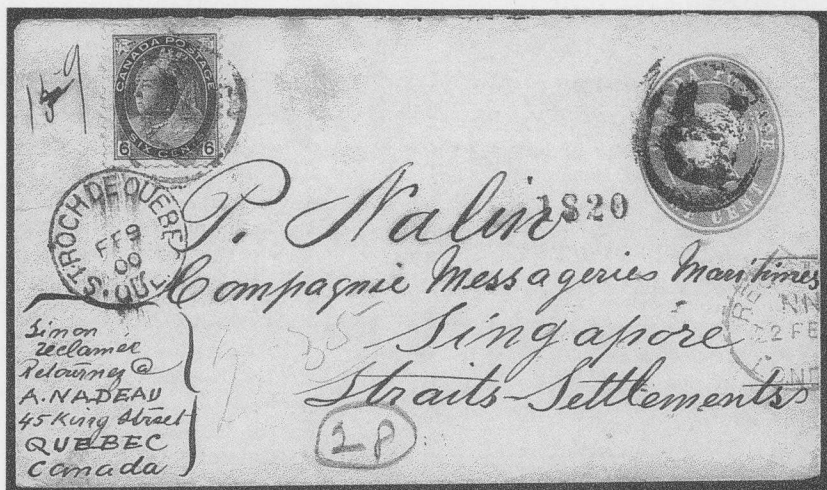 CANADA POSTAGE
6 SIX CENTS 6
ST ROCH DE QUEBEC
FE 9
00
QUE
P. Nalin
1820
Compagnie Messageries Maritimes
Singapore
Straits-Settlements
Sinon
réclamer
Retournez @
A. NADEAU
45 King Street
QUEBEC
Canada
2 P
CENT
RE
NN
22 FE